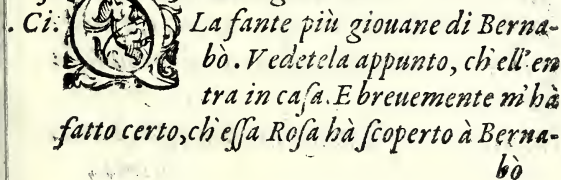 . Ci. La fante più giouane di Berna-
bò. Vedetela appunto, ch'ell'en
tra in caſa. E breuemente m'hà
fatto certo, ch'eſſa Roſa hà ſcoperto à Berna-
bò